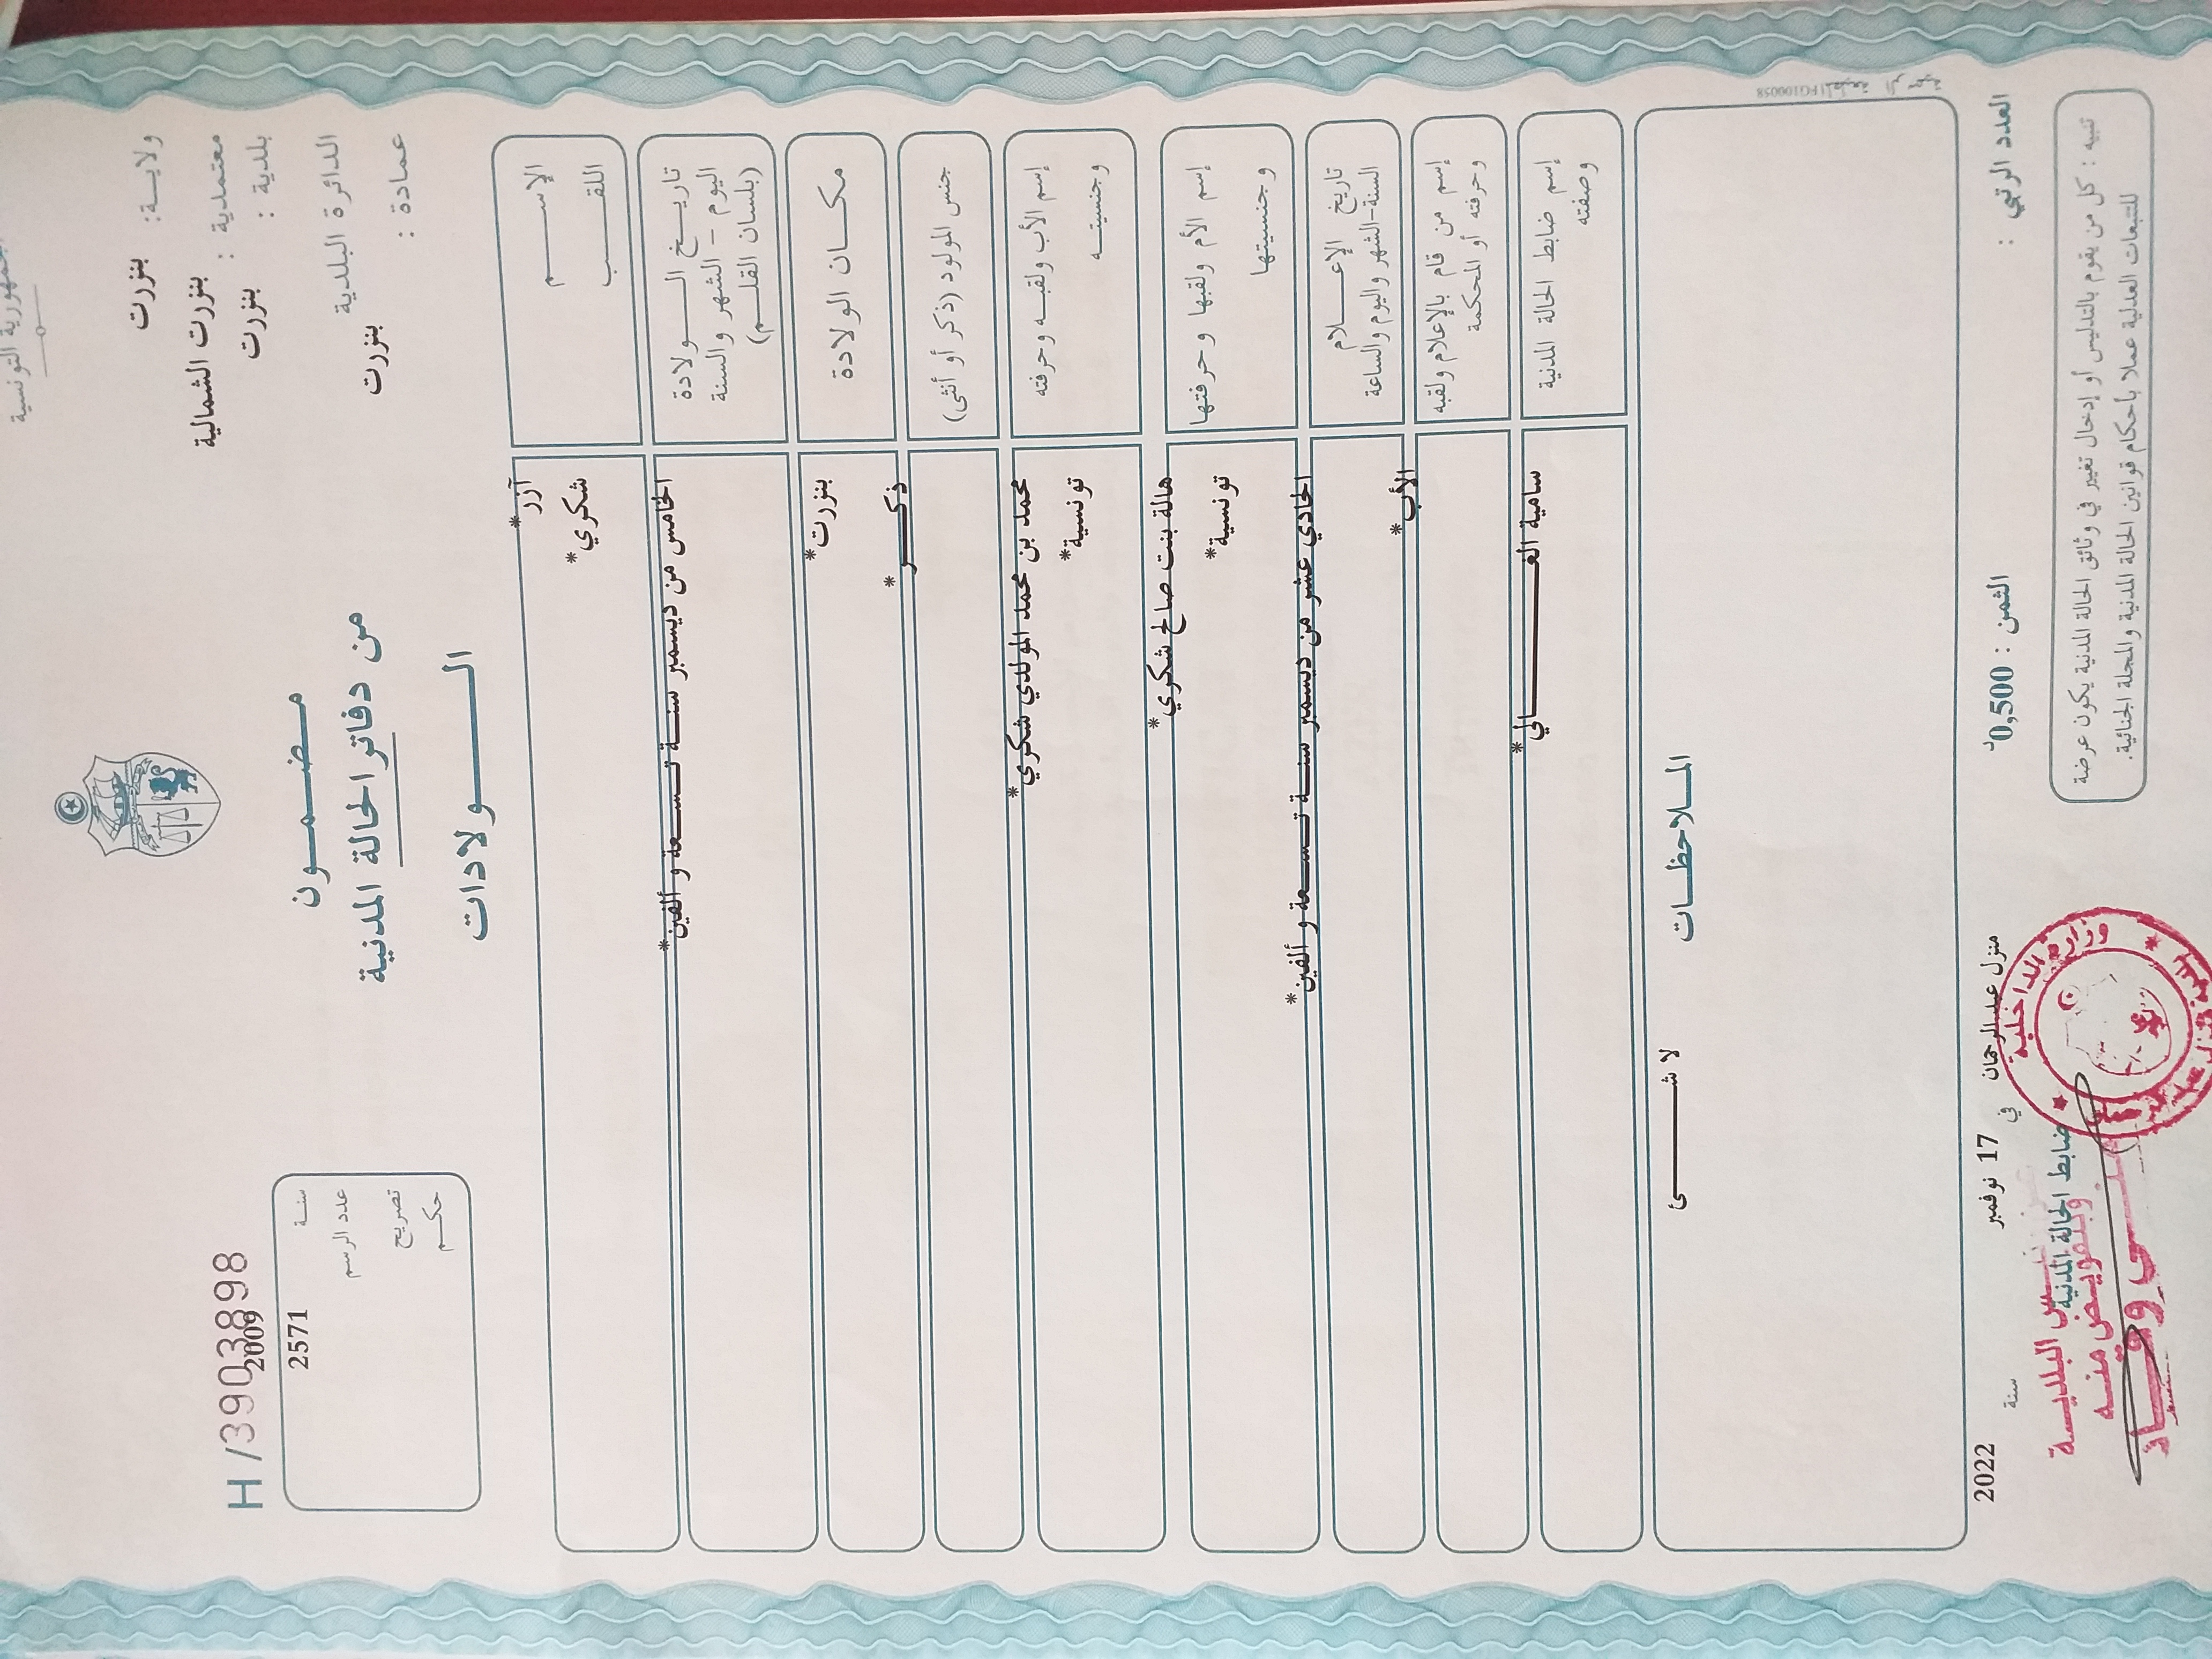 الجمهورية التونسية
ولاية: بنزرت
معتمدية : بنزرت الشمالية
بلدية : بنزرت
الدائرة البلدية
عمادة : بنزرت
مضمون
من دفاتر الحالة المدنية
الولادات
H /39038898
سنة 2009
عدد الرسم 2571
تصريح
حكم
الإسم آزر*
اللقب شكري*
تاريخ الولادة
اليوم - الشهر والسنة
(بلسان القلم)
الخامس من ديسمبر سنة تسعة و ألفين*
مكان الولادة بنزرت*
جنس المولود (ذكر أو أنثى) ذكر*
إسم الأب ولقبه وحرفته محمد بن محمد المولدي شكري*
وجنسيته تونسية*
إسم الأم ولقبها وحرفتها هالة بنت صالح شكري*
وجنسيتها تونسية*
تاريخ الإعلام
السنة-الشهر واليوم والساعة
الحادي عشر من ديسمبر سنة تسعة و ألفين*
إسم من قام بالإعلام ولقبه
وحرفته أو المحكمة
الأب*
إسم ضابط الحالة المدنية
وصفته
سامية الغالي*
الملاحظات
لا شئ
العدد الرتبي :
الثمن : 0,500د
منزل عبدالرحمان في 17 نوفمبر سنة 2022
ضابط الحالة المدنية
تنبيه : كل من يقوم بالتدليس أو إدخال تغيير في وثائق الحالة المدنية يكون عرضة
للتبعات العدلية عملا بأحكام قوانين الحالة المدنية والمجلة الجنائية.
وزارة الداخلية
البلدية
وبتفويض منه